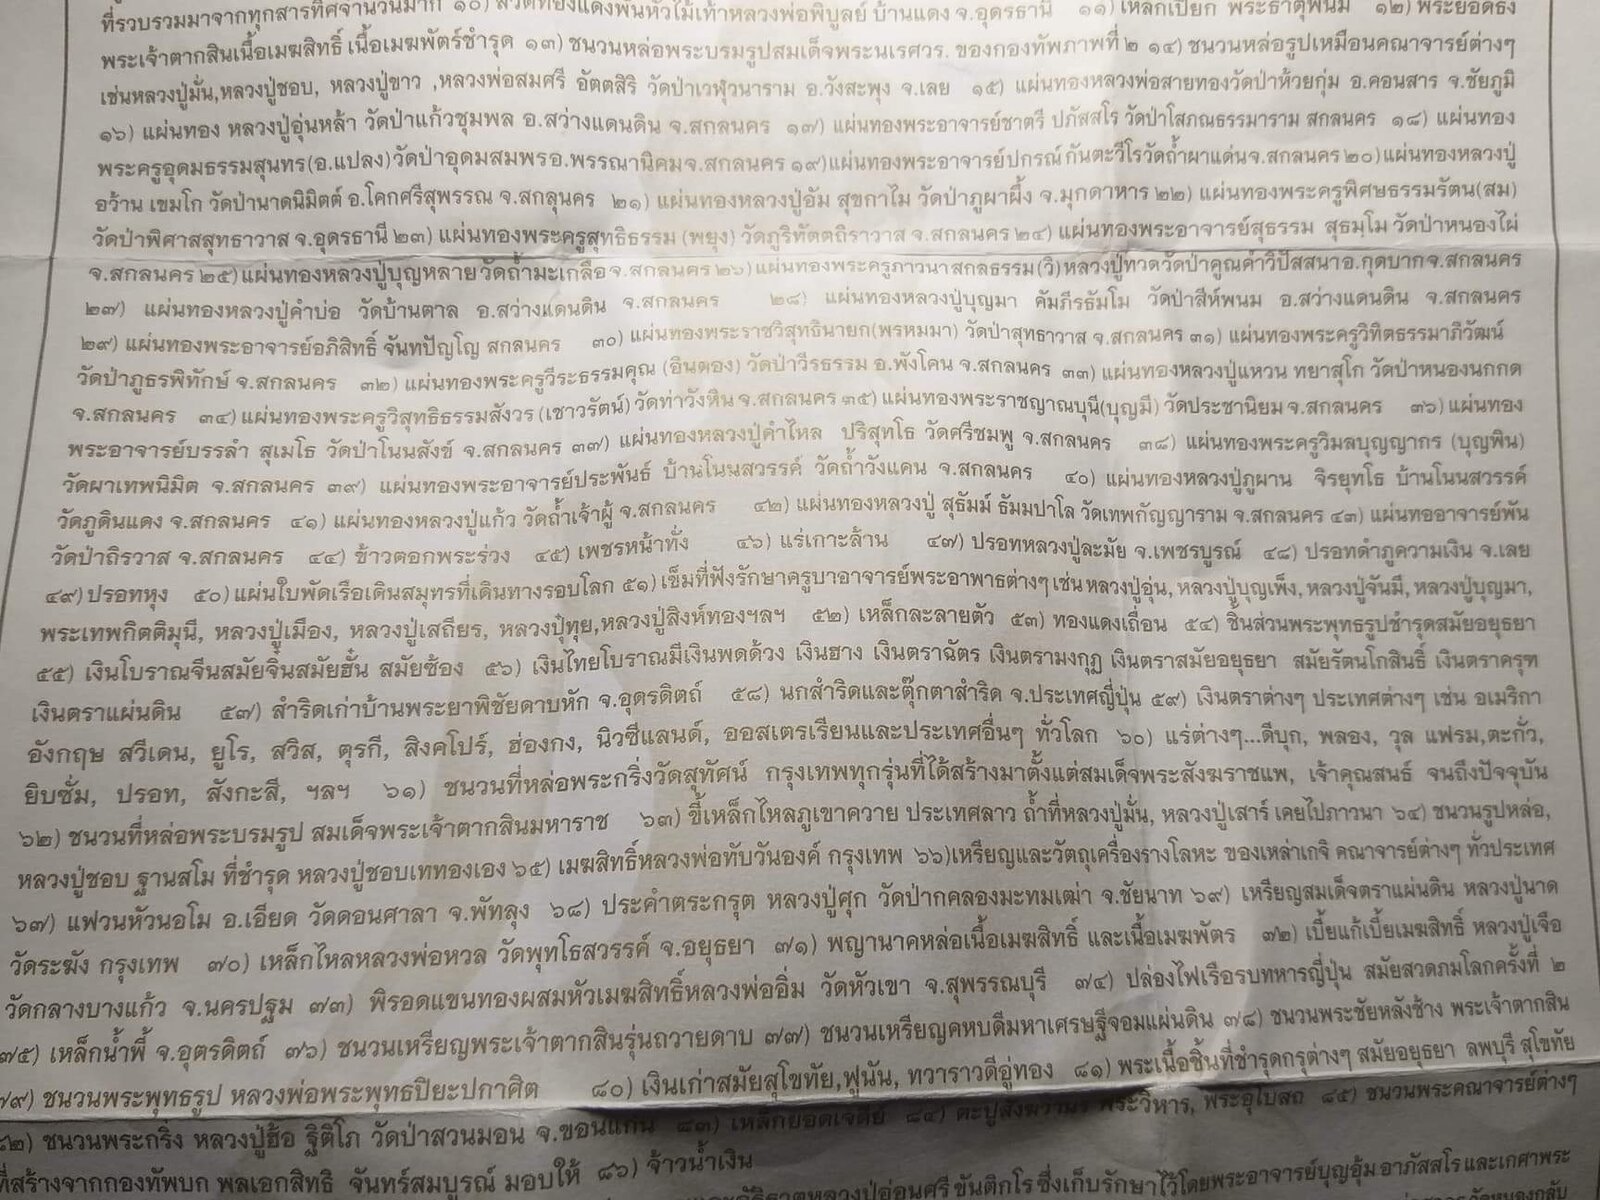 ที่รวบรวมมาจากทุกสารทิศจำนวนมาก ๑๐) ลวดทองแดงพันหัวไม้เท้าหลวงพ่อพิบูลย์ บ้านแดง จ.อุดรธานี ๑๑) เหล็กเปียก พระธาตุพนม ๑๒) พระยอดธง
พระเจ้าตากสินเนื้อเมฆสิทธิ์ เนื้อเมฆพัตร์ชำรุด ๑๓) ชนวนหล่อพระบรมรูปสมเด็จพระนเรศวร. ของกองทัพภาพที่ ๒ ๑๔) ชนวนหล่อรูปเหมือนคณาจารย์ต่างๆ
เช่นหลวงปู่มั่น,หลวงปู่ชอบ, หลวงปู่ขาว ,หลวงพ่อสมศรี อัตตสิริ วัดป่าเวฬุวนาราม อ.วังสะพุง จ.เลย ๑๕) แผ่นทองหลวงพ่อสายทองวัดป่าห้วยกุ่ม อ.คอนสาร จ.ชัยภูมิ
๑๖) แผ่นทอง หลวงปู่อุ่นหล้า วัดป่าแก้วชุมพล อ.สว่างแดนดิน จ.สกลนคร ๑๗) แผ่นทองพระอาจารย์ชาตรี ปภัสสโร วัดป่าโสภณธรรมาราม สกลนคร ๑๘) แผ่นทอง
พระครูอุดมธรรมสุนทร(อ.แปลง)วัดป่าอุดมสมพรอ.พรรณานิคมจ.สกลนคร ๑๙)แผ่นทองพระอาจารย์ปกรณ์ กันตะวีโรวัดถ้ำผาแด่นจ.สกลนคร ๒๐)แผ่นทองหลวงปู่
อว้าน เขมโก วัดป่านาดนิมิตต์ อ.โคกศรีสุพรรณ จ.สกลนคร ๒๑) แผ่นทองหลวงปู่อัม สุขกาไม วัดป่าภูผาผึ้ง จ.มุกดาหาร ๒๒) แผ่นทองพระครูพิศษธรรมรัตน(สม)
วัดป่าพิศาสสุทธาวาส จ.อุดรธานี ๒๓) แผ่นทองพระครูสุทธิธรรม (พยุง) วัดภูริทัตตถิราวาส จ.สกลนคร ๒๔) แผ่นทองพระอาจารย์สุธรรม สุธมฺโม วัดป่าหนองไผ่
จ.สกลนคร ๒๕) แผ่นทองหลวงปู่บุญหลาย วัดถ้ำมะเกลือ จ.สกลนคร ๒๖) แผ่นทองพระครูภาวนาสกลธรรม (วิ) หลวงปู่ทวดวัดป่าคูณคำวิปัสสนาอ.กุดบากจ.สกลนคร
๒๗) แผ่นทองหลวงปู่คำบ่อ วัดบ้านตาล อ.สว่างแดนดิน จ.สกลนคร ๒๘) แผ่นทองหลวงปู่บุญมา คัมภีรธัมโม วัดป่าสีห์พนม อ.สว่างแดนดิน จ.สกลนคร
๒๙) แผ่นทองพระอาจารย์อภิสิทธิ์ จันทปัญโญ สกลนคร ๓๐) แผ่นทองพระราชวิสุทธินายก(พรหมมา) วัดป่าสุทธาวาส จ.สกลนคร ๓๑) แผ่นทองพระครูวิทิตธรรมาภิวัฒน์
วัดป่าภูธรพิทักษ์ จ.สกลนคร ๓๒) แผ่นทองพระครูวีระธรรมคุณ (อินตอง) วัดป่าวีรธรรม อ.พังโคน จ.สกลนคร ๓๓) แผ่นทองหลวงปู่แหวน ทยาสุโก วัดป่าหนองนกกด
จ.สกลนคร ๓๔) แผ่นทองพระครูวิสุทธิธรรมสังวร (เชาวรัตน์) วัดท่าวังหิน จ.สกลนคร ๓๕) แผ่นทองพระราชญาณมุนี(บุญมี) วัดประชานิยม จ.สกลนคร ๓๖) แผ่นทอง
พระอาจารย์บรรลำ สุเมโธ วัดป่าโนนสังข์ จ.สกลนคร ๓๗) แผ่นทองหลวงปู่คำไหล ปริสุทโธ วัดศรีชมพู จ.สกลนคร ๓๘) แผ่นทองพระครูวิมลบุญญากร (บุญพิน)
วัดผาเทพนิมิต จ.สกลนคร ๓๙) แผ่นทองพระอาจารย์ประพันธ์ บ้านโนนสวรรค์ วัดถ้ำวังแคน จ.สกลนคร ๔๐) แผ่นทองหลวงปู่ภูผาน จิรยุทโธ บ้านโนนสวรรค์
วัดภูดินแดง จ.สกลนคร ๔๑) แผ่นทองหลวงปู่แก้ว วัดถ้ำเจ้าผู้ จ.สกลนคร ๔๒) แผ่นทองหลวงปู่ สุธัมม์ ธัมมปาโล วัดเทพกัญญาราม จ.สกลนคร ๔๓) แผ่นทออาจารย์พัน
วัดป่าถิรวาส จ.สกลนคร ๔๔) ข้าวตอกพระร่วง ๔๕) เพชรหน้าทั่ง ๔๖) แร่เกาะล้าน ๔๗) ปรอทหลวงปู่ละมัย จ.เพชรบูรณ์ ๔๘) ปรอทดำภูความเงิน จ.เลย
๔๙) ปรอทหุง ๕๐) แผ่นใบพัดเรือเดินสมุทรที่เดินทางรอบโลก ๕๑) เข็มที่ฟังรักษาครูบาอาจารย์พระอาพาธต่างๆ เช่น หลวงปู่อุ่น, หลวงปู่บุญเพ็ง, หลวงปู่จันมี, หลวงปู่บุญมา,
พระเทพกิตติมุนี, หลวงปู่เมือง, หลวงปู่เสถียร, หลวงปุ๋ทุย,หลวงปู่สิงห์ทองฯลฯ ๕๒) เหล็กละลายตัว ๕๓) ทองแดงเถื่อน ๕๔) ชิ้นส่วนพระพุทธรูปชำรุดสมัยอยุธยา
๕๕) เงินโบราณจีนสมัยจิ๋นสมัยฮั่น สมัยซ้อง ๕๖) เงินไทยโบราณมีเงินพดด้วง เงินฮาง เงินตราฉัตร เงินตรามงกุฎ เงินตราสมัยอยุธยา สมัยรัตนโกสินธิ์ เงินตราครุฑ
เงินตราแผ่นดิน ๕๗) สำริดเก่าบ้านพระยาพิชัยดาบหัก จ.อุตรดิตถ์ ๕๘) นกสำริดและตุ๊กตาสำริด จ.ประเทศญี่ปุ่น ๕๙) เงินตราต่างๆ ประเทศต่างๆ เช่น อเมริกา
อังกฤษ สวีเดน, ยูโร, สวิส, ตุรกี, สิงคโปร์, ฮ่องกง, นิวซีแลนด์, ออสเตรเรียนและประเทศอื่นๆ ทั่วโลก ๖๐) แร่ต่างๆ...ดีบุก, พลอง, วุล แฟรม,ตะกั่ว,
ยิบซั่ม, ปรอท, สังกะสี, ฯลฯ ๖๑) ชนวนที่หล่อพระกริ่งวัดสุทัศน์ กรุงเทพทุกรุ่นที่ได้สร้างมาตั้งแต่สมเด็จพระสังฆราชแพ, เจ้าคุณสนธ์ จนถึงปัจจุบัน
๖๒) ชนวนที่หล่อพระบรมรูป สมเด็จพระเจ้าตากสินมหาราช ๖๓) ขี้เหล็กไหลภูเขาควาย ประเทศลาว ถ้ำที่หลวงปู่มั่น, หลวงปู่เสาร์ เคยไปภาวนา ๖๔) ชนวนรูปหล่อ,
หลวงปู่ชอบ ฐานสโม ที่ชำรุด หลวงปู่ชอบเททองเอง ๖๕) เมฆสิทธิ์หลวงพ่อทับวันองค์ กรุงเทพ ๖๖)เหรียญและวัตถุเครื่องรางโลหะ ของเหล่าเกจิ คณาจารย์ต่างๆ ทั่วประเทศ
๖๗) แฟวนหัวนอโม อ.เอียด วัดดอนศาลา จ.พัทลุง ๖๘) ประคำตระกรุต หลวงปู่ศุก วัดป่ากคลองมะทมเฒ่า จ.ชัยนาท ๖๙) เหรียญสมเด็จตราแผ่นดิน หลวงปู่นาด
วัดระฆัง กรุงเทพ ๗๐) เหล็กไหลหลวงพ่อหวล วัดพุทโธสวรรค์ จ.อยุธยา ๗๑) พญานาคหล่อเนื้อเมฆสิทธิ์ และเนื้อเมฆพัตร ๗๒) เบี้ยแก้เบี้ยเมฆสิทธิ์ หลวงปู่เจือ
วัดกลางบางแก้ว จ.นครปฐม ๗๓) พิรอดแขนทองผสมหัวเมฆสิทธิ์หลวงพ่ออิ่ม วัดหัวเขา จ.สุพรรณบุรี ๗๔) ปล่องไฟเรือรบทหารญี่ปุ่น สมัยสวดภมโลกครั้งที่ ๒
๗๕) เหล็กน้ำพี้ จ.อุตรดิตถ์ ๗๖) ชนวนเหรียญพระเจ้าตากสินรุ่นถวายดาบ ๗๗) ชนวนเหรียญคหบดีมหาเศรษฐีจอมแผ่นดิน ๗๘) ชนวนพระชัยหลังช้าง พระเจ้าตากสิน
๗๙) ชนวนพระพุทธรูป หลวงพ่อพระพุทธปิยะปกาศิต ๘๐) เงินเก่าสมัยสุโขทัย,ฟูนัน, ทวาราวดีอู่ทอง ๘๑) พระเนื้อชิ้นที่ชำรุดกรุต่างๆ สมัยอยุธยา ลพบุรี สุโขทัย
๘๒) ชนวนพระกริ่ง หลวงปู่ฮ้อ ฐิติโภ วัดป่าสวนมอน จ.ขอนแก่น ๘๓) เหล็กยอดเจดีย์ ๘๔) ตะปูสังฆวานร พระวิหาร, พระอุโบสถ ๘๕) ชนวนพระคณาจารย์ต่างๆ
ที่สร้างจากกองทัพบก พลเอกสิทธิ จันทร์สมบูรณ์ มอบให้ ๘๖) จ้าวน้ำเงิน
หลวงปู่อ่อนศรี ขันติกโร ซึ่งเก็บรักษาไว้โดยพระอาจารย์บุญอุ้ม อาภัสสโร และเกศาพระ